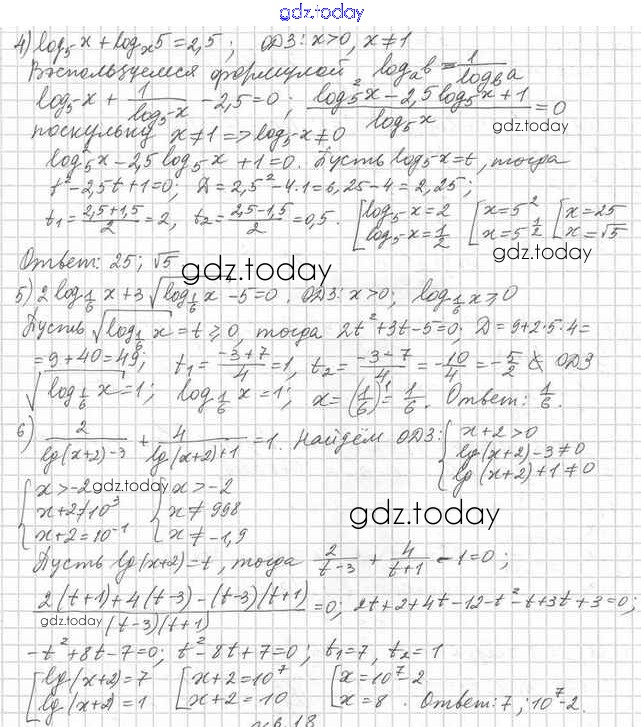 gdz.today
4) log₅x + logₓ5 = 2,5; ОДЗ: x>0, x≠1
Воспользуемся формулой logₐb = 1/log_b a
log₅x + 1/log₅x − 2,5 = 0; (log₅²x − 2,5 log₅x + 1)/log₅x = 0
gdz.today
поскольку x≠1 => log₅x≠0
log₅²x − 2,5 log₅x + 1 = 0. Пусть log₅x = t, тогда
t² − 2,5t + 1 = 0; D = 2,5² − 4·1 = 6,25 − 4 = 2,25;
t₁ = (2,5+1,5)/2 = 2, t₂ = (2,5−1,5)/2 = 0,5. [log₅x = 2 [x = 5² [x = 25
log₅x = 1/2 x = 5^(1/2) x = √5
Ответ: 25; √5
gdz.today gdz.today
5) 2 log_(1/6) x + 3√(log_(1/6) x) − 5 = 0. ОДЗ: x>0; log_(1/6) x ≥ 0
Пусть √(log_(1/6) x) = t ≥ 0, тогда 2t² + 3t − 5 = 0; D = 9 + 2·5·4 =
= 9 + 40 = 49; t₁ = (−3+7)/4 = 1, t₂ = (−3−7)/4 = −10/4 = −5/2 ∉ ОДЗ
√(log_(1/6) x) = 1; log_(1/6) x = 1; x = (1/6)¹ = 1/6. Ответ: 1/6.
6) 2/(lg(x+2)−3) + 4/(lg(x+2)+1) = 1. Найдём ОДЗ: {x+2>0
lg(x+2)−3≠0
lg(x+2)+1≠0
{x>−2 {x>−2
gdz.today
x+2≠10³ x≠998
x+2=10⁻¹ x≠−1,9
gdz.today
Пусть lg(x+2) = t, тогда 2/(t−3) + 4/(t+1) − 1 = 0;
(2(t+1)+4(t−3)−(t−3)(t+1))/((t−3)(t+1)) = 0; 2t+2+4t−12−t²−t+3t+3=0;
gdz.today
−t²+8t−7=0; t²−8t+7=0; t₁=7, t₂=1
[lg(x+2)=7 [x+2=10⁷ [x=10⁷−2
lg(x+2)=1 x+2=10 x=8. Ответ: 7; 10⁷−2.